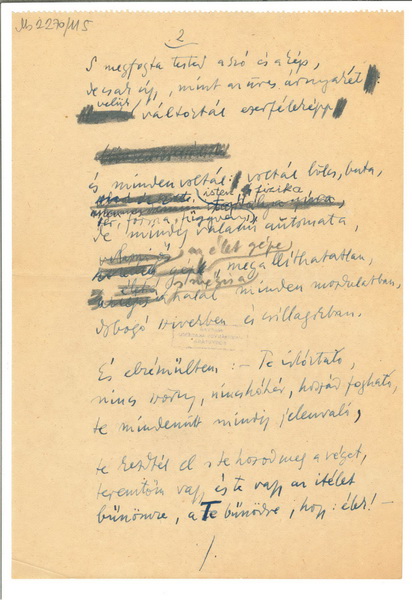 Ms 2270/115
2
S megfogta tested a szó és a kép,
de csak úgy, mint az üres árnyakét
velük
változtál ezerféleképp

és minden voltál: voltál bölcs, buta,
isten, fizika
tér, forma, függvény,
de mindig valami automata,
az élet gépe
megállíthatatlan,
halál minden mozdulatban,
dobogó szivekben és csillagokban.
És elrémültem: – Te
nincs, nincs hóhér, hozzád fogható,
te mindenütt mindig jelenvaló,
te kezdtél el s te hozod meg a véget,
teremtőm vagy, és te vagy az itélet
bűnömre, a Te bűnödre, hogy: élek! –